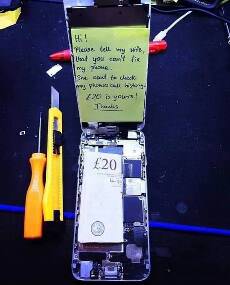 Hi!
Please tell my wife,
that you can't fix
my phone.
She want to check
my phones call history.
£20 is yours!
Thanks
£20